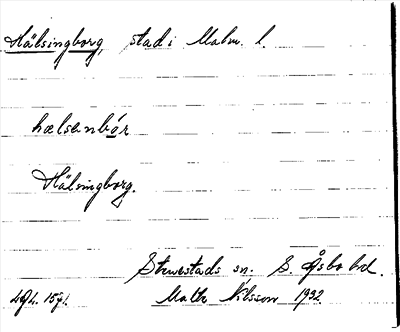 Hälsingborg, stad i Malm. l.
hælsenbɑ́r
Hälsingborg.
Strövestads sn. S. Åsbo hd.
Malte Nilsson 1932